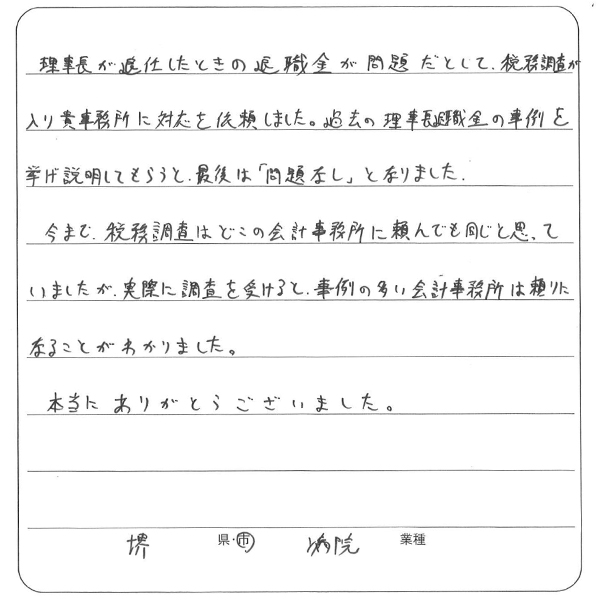 理事長が退任したときの退職金が問題だとして、税務調査が
入り貴事務所に対応を依頼しました。過去の理事長退職金の事例を
挙げ説明してもらうと、最後は「問題なし」となりました。
今まで、税務調査はどこの会計事務所に頼んでも同じと思って
いましたが、実際に調査を受けると、事例の多い会計事務所は頼りに
なることがわかりました。
本当にありがとうございました。
堺 県・市 病院 業種